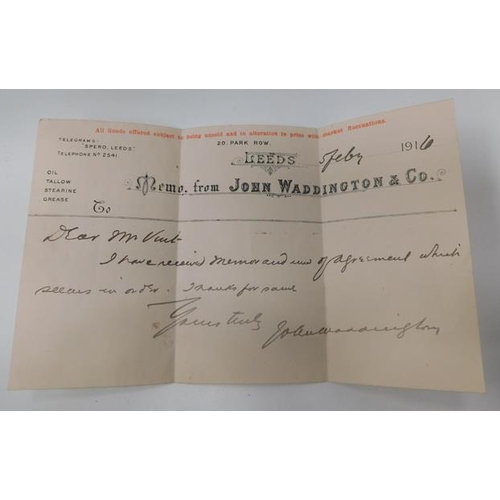 All Goods offered subject to being unsold and to alteration in price with market fluctuations.
TELEGRAMS:
"SPERO, LEEDS"
TELEPHONE Nº 2541
20, PARK ROW,
LEEDS 5 Feby 1916
OIL
TALLOW
STEARINE
GREASE
Memo. from JOHN WADDINGTON & Co.
To
Dear Mr Vint
I have received Memorandum of Agreement which
seems in order. Thanks for same
Yours truly
John Waddington